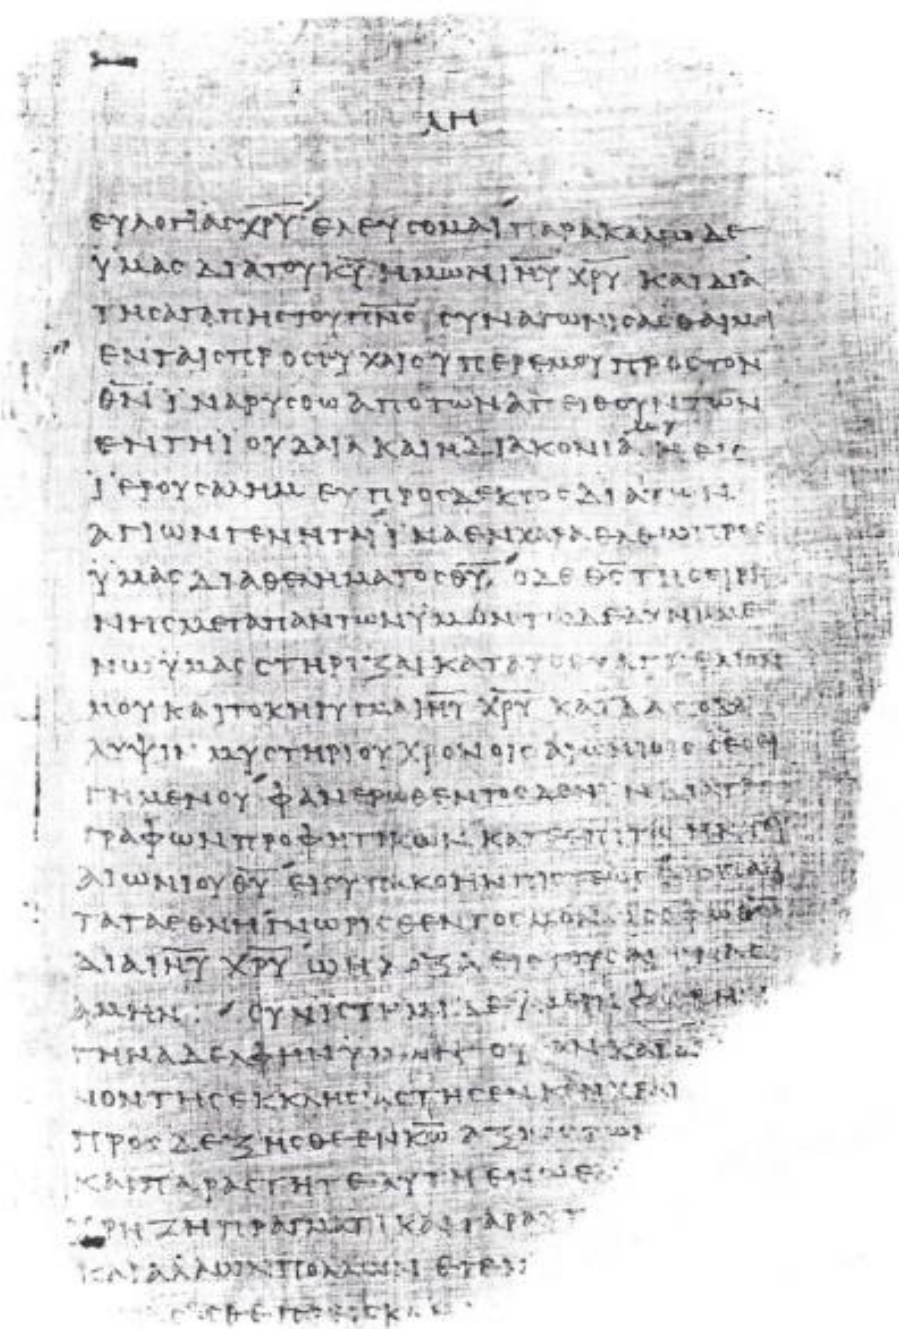 ΛΗ
ΕΥΛΟΓΙΑΣ ΧΡΥ ΕΛΕΥΣΟΜΑΙ ΠΑΡΑΚΑΛΩ ΔΕ
ΥΜΑΣ ΔΙΑ ΤΟΥ ΚΥ ΗΜΩΝ ΙΗΥ ΧΡΥ ΚΑΙ ΔΙΑ
ΤΗΣ ΑΓΑΠΗΣ ΤΟΥ ΠΝΣ ΣΥΝΑΓΩΝΙΣΑΣΘΑΙ ΜΟΙ
ΕΝ ΤΑΙΣ ΠΡΟΣΕΥΧΑΙΣ ΥΠΕΡ ΕΜΟΥ ΠΡΟΣ ΤΟΝ
ΘΝ ΙΝΑ ΡΥΣΘΩ ΑΠΟ ΤΩΝ ΑΠΕΙΘΟΥΝΤΩΝ
ΕΝ ΤΗ ΙΟΥΔΑΙΑ ΚΑΙ Η ΔΙΑΚΟΝΙΑ ΜΟΥ Η ΕΙΣ
ΙΕΡΟΥΣΑΛΗΜ ΕΥΠΡΟΣΔΕΚΤΟΣ ΔΙΑ ΤΩΝ
ΑΓΙΩΝ ΓΕΝΗΤΑΙ ΙΝΑ ΕΝ ΧΑΡΑ ΕΛΘΩ ΠΡΟΣ
ΥΜΑΣ ΔΙΑ ΘΕΛΗΜΑΤΟΣ ΘΥ Ο ΔΕ ΘΣ ΤΗΣ ΕΙΡΗ
ΝΗΣ ΜΕΤΑ ΠΑΝΤΩΝ ΥΜΩΝ ΤΩ ΔΕ ΔΥΝΑΜΕ
ΝΩ ΥΜΑΣ ΣΤΗΡΙΞΑΙ ΚΑΤΑ ΤΟ ΕΥΑΓΓΕΛΙΟΝ
ΜΟΥ ΚΑΙ ΤΟ ΚΗΡΥΓΜΑ ΙΗΥ ΧΡΥ ΚΑΤΑ ΑΠΟΚΑ
ΛΥΨΙΝ ΜΥΣΤΗΡΙΟΥ ΧΡΟΝΟΙΣ ΑΙΩΝΙΟΙΣ ΣΕΣΕΙ
ΓΗΜΕΝΟΥ ΦΑΝΕΡΩΘΕΝΤΟΣ ΔΕ ΝΥΝ ΔΙΑ ΤΕ
ΓΡΑΦΩΝ ΠΡΟΦΗΤΙΚΩΝ ΚΑΤ ΕΠΙΤΑΓΗΝ ΤΟΥ
ΑΙΩΝΙΟΥ ΘΥ ΕΙΣ ΥΠΑΚΟΗΝ ΠΙΣΤΕΩΣ ΕΙΣ ΠΑΝ
ΤΑ ΤΑ ΕΘΝΗ ΓΝΩΡΙΣΘΕΝΤΟΣ ΜΟΝΩ ΣΟΦΩ ΘΩ
ΔΙΑ ΙΗΥ ΧΡΥ Ω Η ΔΟΞΑ ΕΙΣ ΤΟΥΣ ΑΙΩΝΑΣ
ΑΜΗΝ ΣΥΝΙΣΤΗΜΙ ΔΕ ΥΜΕΙΝ ΦΟΙΒΗΝ
ΤΗΝ ΑΔΕΛΦΗΝ ΥΜΩΝ ΟΥΣΑΝ ΚΑΙ ΔΙΑΚΟ
ΝΟΝ ΤΗΣ ΕΚΚΛΗΣΙΑΣ ΤΗΣ ΕΝ ΚΕΝΧΡΕΑΙ
ΠΡΟΣΔΕΞΗΣΘΕ ΕΝ ΚΩ ΑΞΙΩΣ ΤΩΝ
ΚΑΙ ΠΑΡΑΣΤΗΤΕ ΑΥΤΗ ΕΝ Ω Ε
ΧΡΗΖΗ ΠΡΑΓΜΑΤΙ ΚΑΙ ΓΑΡ ΑΥΤ
ΚΑΙ ΑΛΛΩΝ ΠΟΛΛΩΝ ΕΓΕΝ